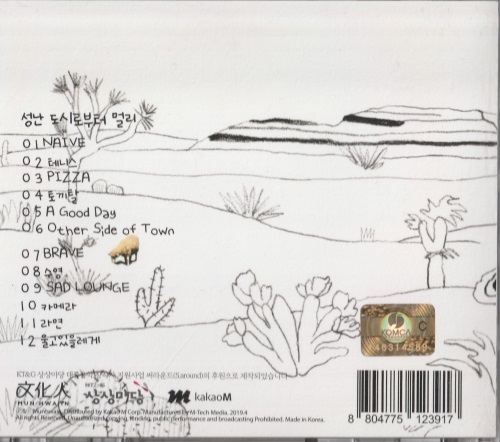 성난 도시로부터 멀리
01 NAIVE
02 테니스
03 PIZZA
04 토끼탈
05 A Good Day
06 Other Side of Town
07 BRAVE
08 수영
09 SAD LOUNGE
10 카메라
11 라면
12 울고있을레게
KT&G 상상마당 써라운드(Saround)의 후원으로 제작되었습니다
文化人
MUN HWA IN
KT&G 상상마당
kakaoM
KOMCA
C
Munhwain. Distributed by KakaoM Corp. Manufactured by M-Tech Media. 2019.4
All rights Reserved. Unauthorized copying, lending, public performance and broadcasting Prohibited. Made in Korea.
8 804775 123917